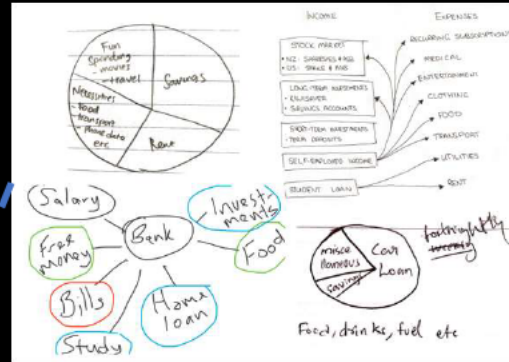 Fun
Spending
- movies
- travel
Savings
Necessities
- Food
- transport
- Phone data
etc
Rent
INCOME
STOCK MARKET
• NZ - SHARESIES &
• US - STAKE &
LONG-TERM INVESTMENTS
• KIWISAVER
• SAVINGS ACCOUNTS
SHORT-TERM INVESTMENTS
- TERM DEPOSITS
SELF-EMPLOYED INCOME
STUDENT LOAN
EXPENSES
RECURRING SUBSCRIPTIONS
MEDICAL
ENTERTAINMENT
CLOTHING
FOOD
TRANSPORT
UTILITIES
RENT
Salary
Free
money
Bills
Study
Bank
Invest-
ments
Food
Home
loan
misce
llaneous
savings
Car
Loan
fortnightly
Food, drinks, fuel etc